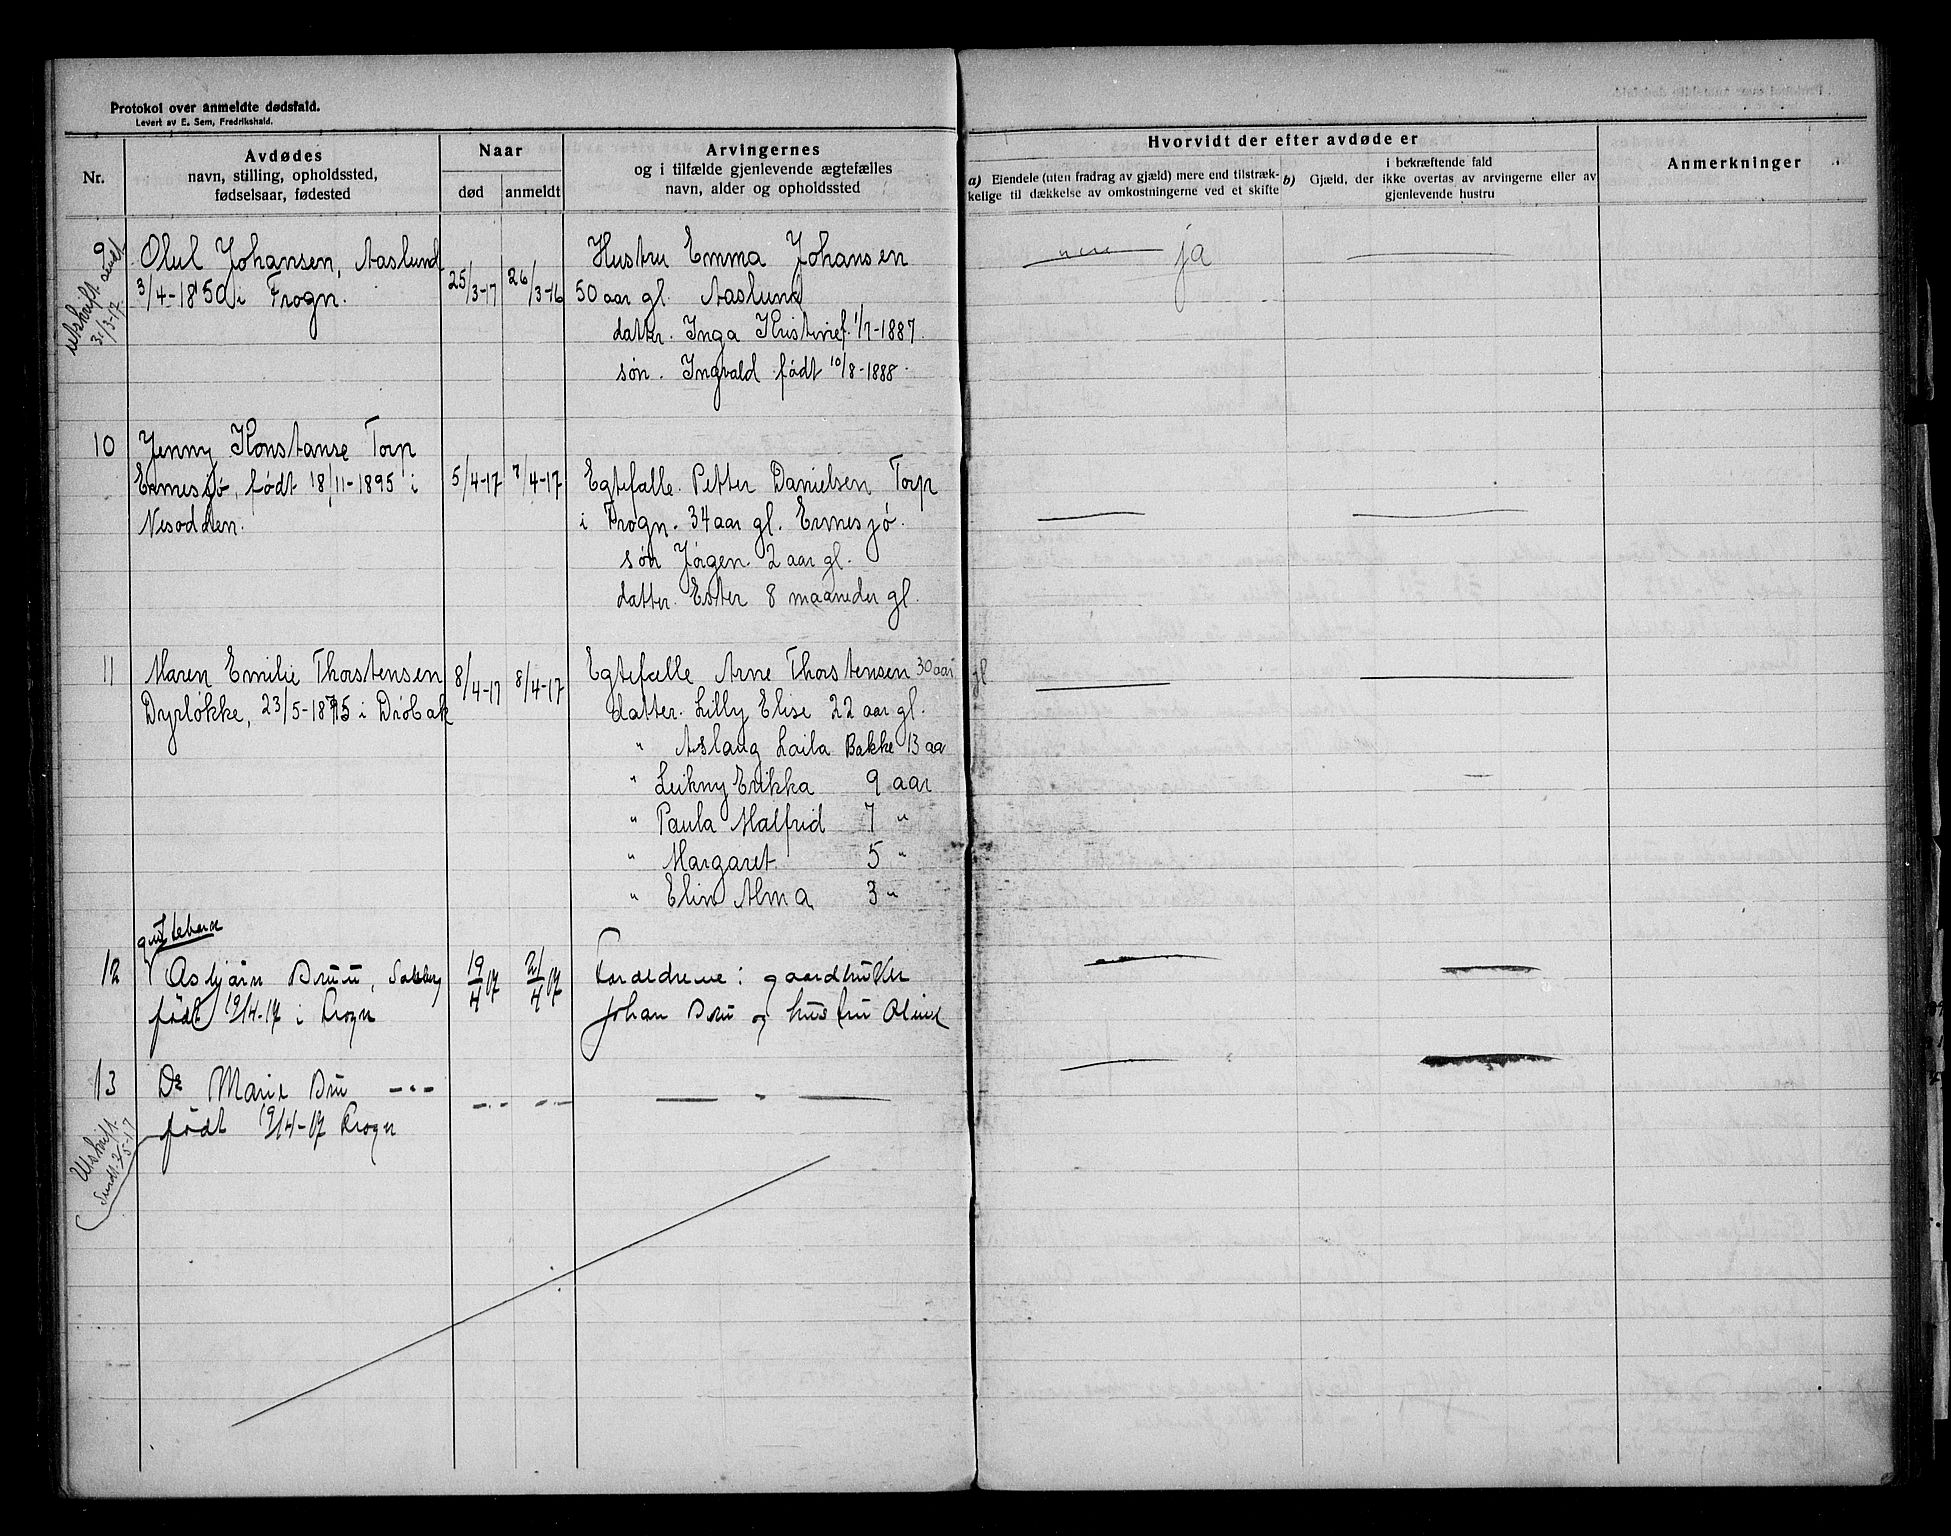 Protokol over anmeldte dødsfald.
Levert av E. Sem, Fredrikshald.
Nr.
Avdødes
navn, stilling, opholdssted,
fødselsaar, fødested
Naar
død
anmeldt
Arvingernes
og i tilfælde gjenlevende ægtefælles
navn, alder og opholdssted
Hvorvidt der efter avdøde er
a) Eiendele (uten fradrag av gjæld) mere end tilstræk-
kelige til dækkelse av omkostningerne ved et skifte
i bekræftende fald
b) Gjæld, der ikke overtas av arvingerne eller av
gjenlevende hustru
Anmerkninger
9
utskrift sendt
31/3-17.
Oluf Johansen, Aaslund
3/4-1850 i Frogn.
25/3-17
26/3-16
Hustru Emma Johansen
50 aar gl. Aaslund
datter. Inga Kristine f. 1/7-1887.
søn. Ingvald født 10/8-1888.
ja
10
Jenny Konstanse Torp
Ermesjø, født 18/11-1895 i
Nesodden.
5/4-17
7/4-17
Egtefælle. Petter Danielsen Torp
i Frogn. 34 aar gl. Ermesjø.
søn Jørgen. 2 aar gl.
datter. Ester 8 maaneder gl.
11
Maren Emilie Thorstensen
Dyrløkke, 23/5-1875 i Drøbak
8/4-17
8/4-17
Egtefælle Arne Thorstensen 30 aar gl
datter. Lilly Elise 22 aar gl.
" Aslaug Laila Bakke 13 aa
" Leikny Erikka 9 aar
" Paula Malfrid 7 "
" Margaret 5 "
" Elin Alma 3 "
12
guttebarn
Asbjørn Bruu, Solberg
født 19/4-17 i Frogn
19/4 17
21/4 17
Forældrene: gaardbruker
Johan Bru og hustru Oline
13
Do Marie Bru -"-
født 19/4-17 Frogn
-"-
-"-
- " -
Utskrift
sendt 2/5-17